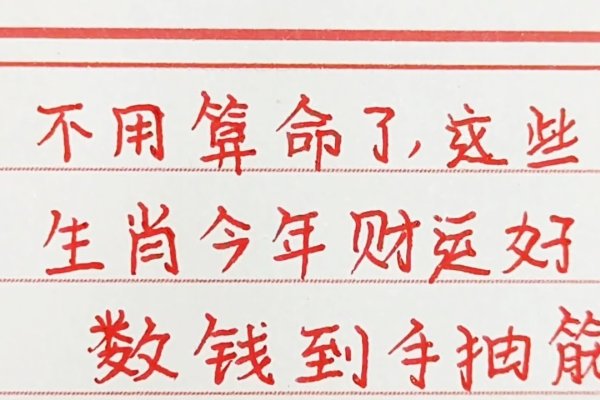 不用算命了,这些
生肖今年财运好
数钱到手抽筋